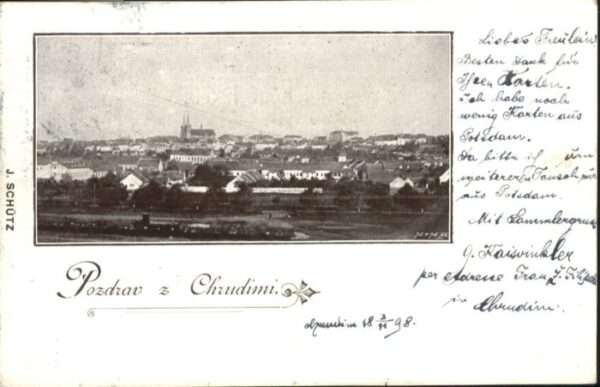 J. SCHÜTZ
Liebes Fräulein
Besten Dank für
Ihre Karten.
ich habe noch
wenig Karten aus
Potsdam.
Da bitte ich um
weiteren Tausch
aus Potsdam.
Mit Sammlergruss
G. Kaiswinkler
per Adresse Franz J.
in
Chrudim.
Pozdrav z Chrudimi.
Chrudim 18 98.